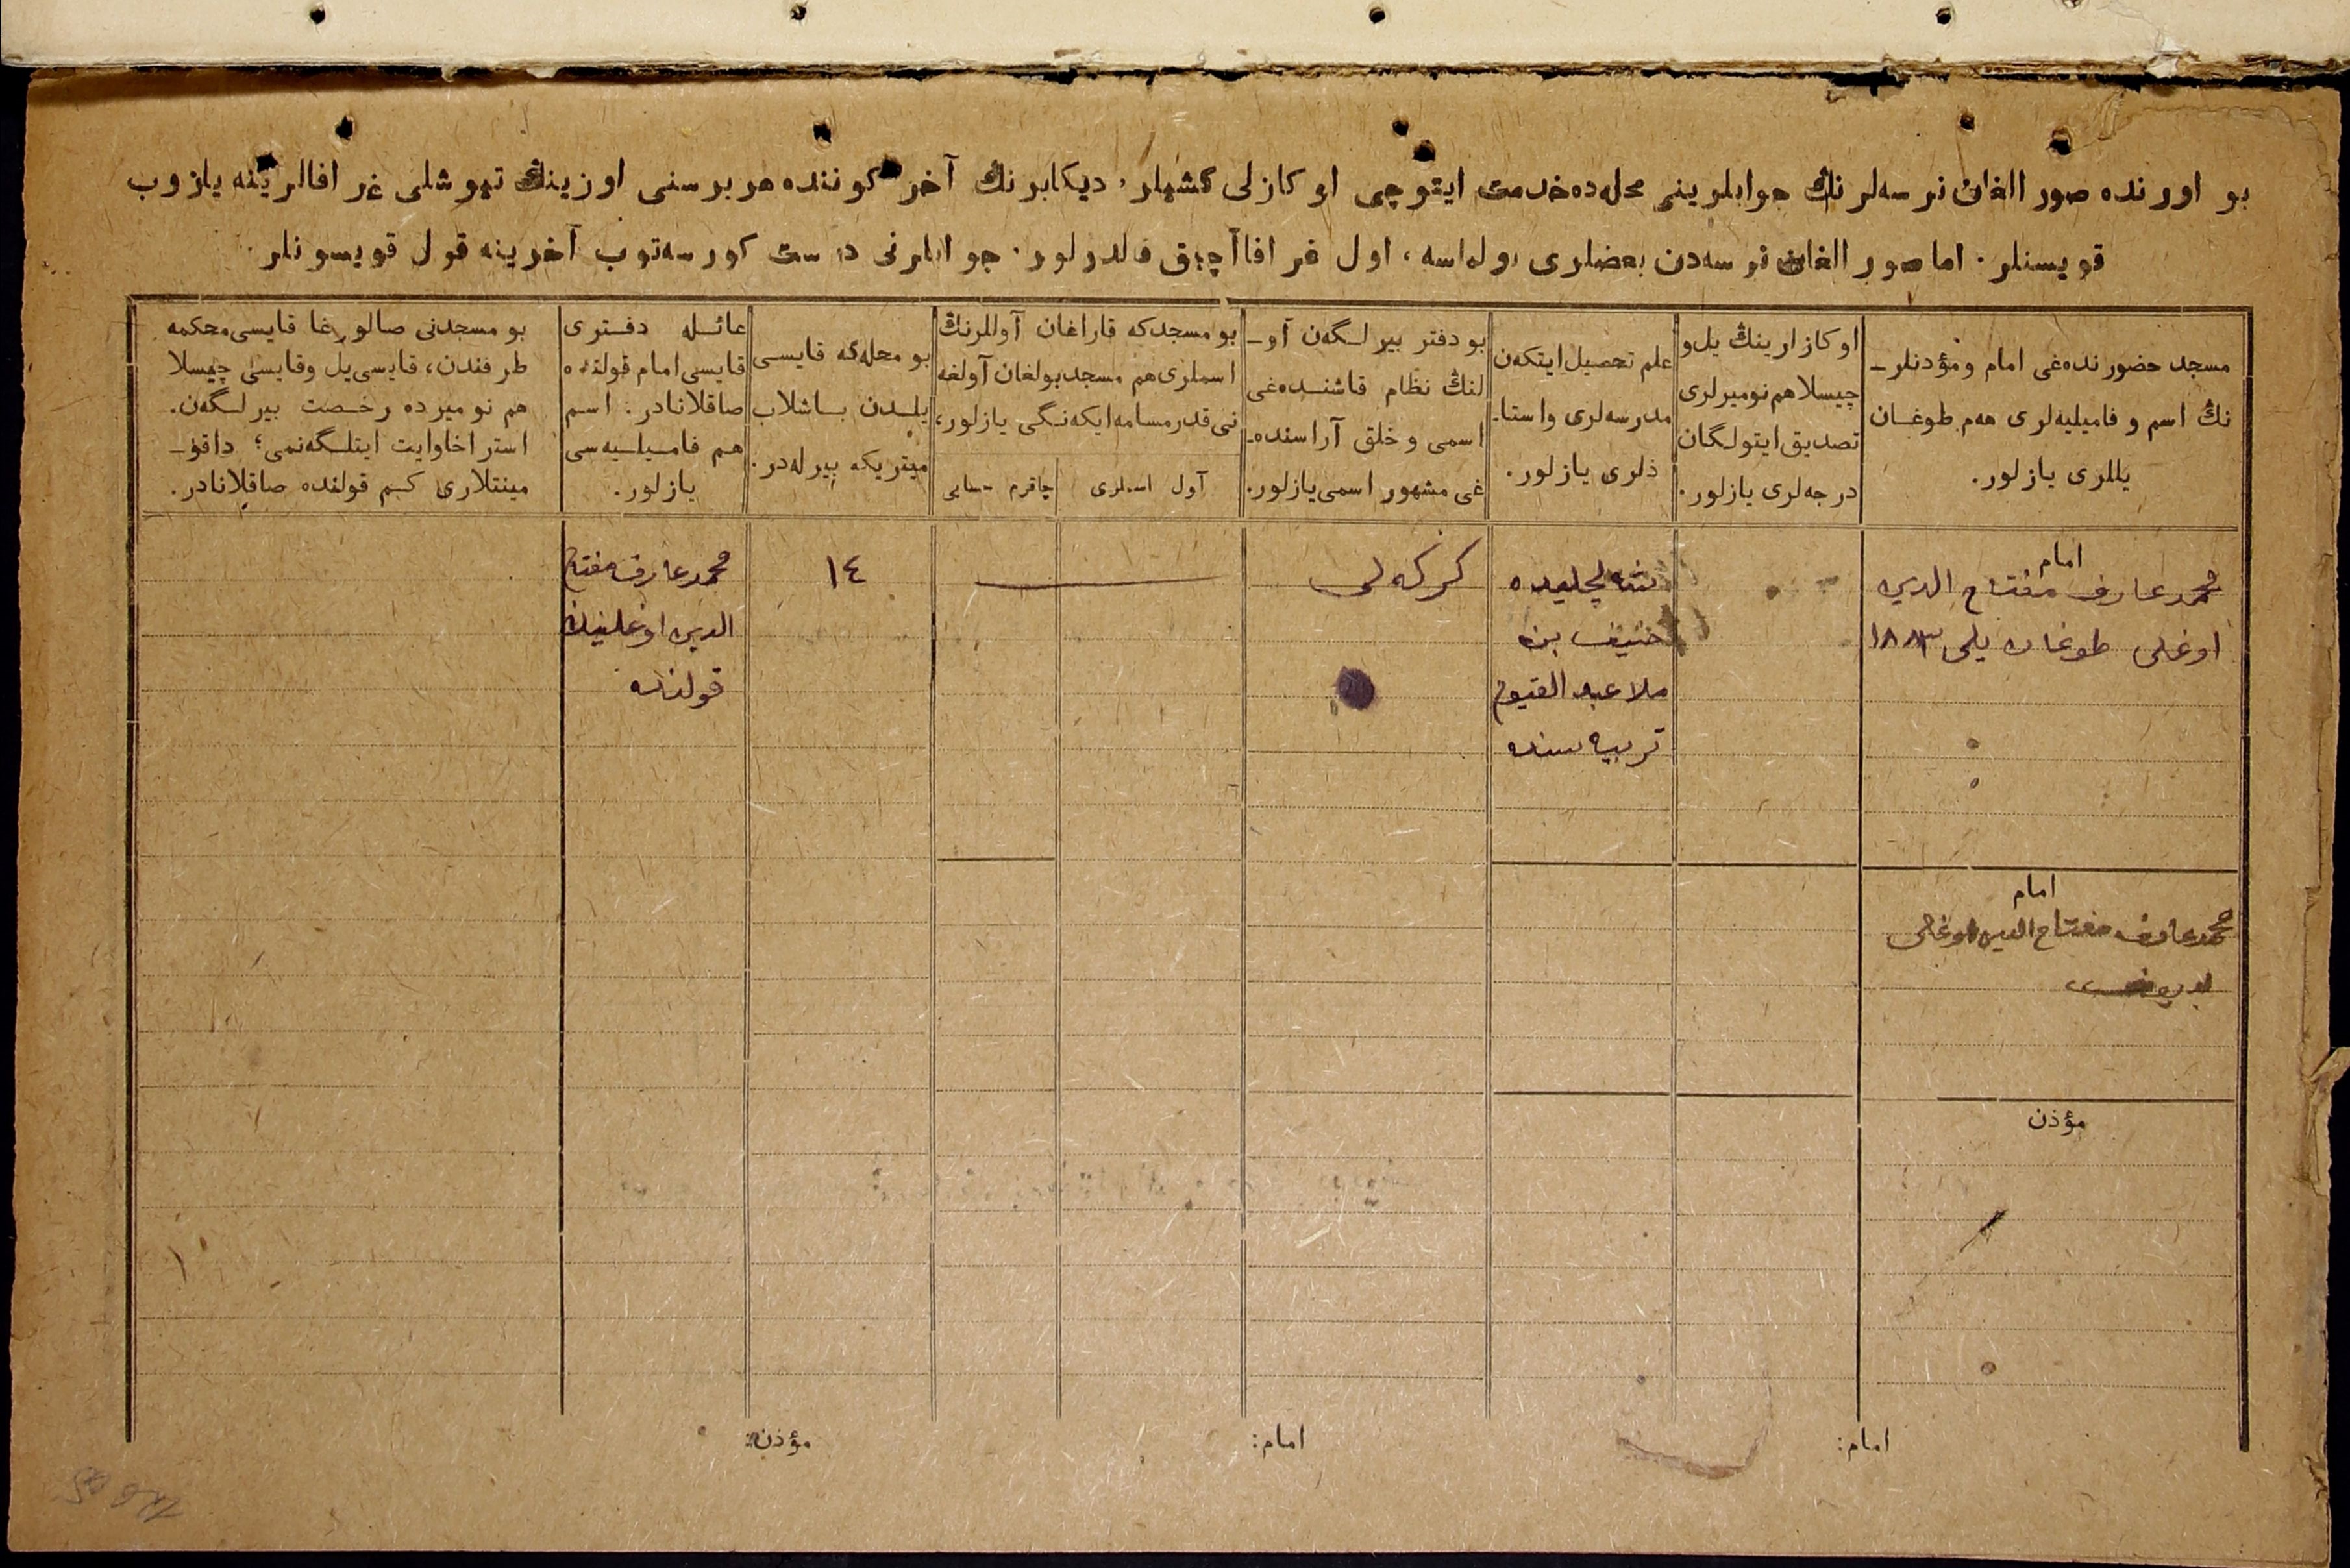 بو اورنده صورالغان نرسه‌لرنڭ جوابلرینی محله‌ده خدمت ایتوچی اوکازلی کشیلر، دیکابرنڭ آخر کوننده هر برسنی اوزینڭ تیوشلی غرافالرینه یازوب
قویسنلر. اما صورالغان نرسه‌دن بعضلری بولماسه، اول غرافا آچیق قالدرلور. جوابلرنی درست کورسه‌توب آخرینه قول قویسونلر.
مسجد حضورنده‌غی امام ومؤذنلر-
نڭ اسم و فامیلیه‌لری هم طوغان
یللری یازلور.
اوکازلرینڭ یل و
چیسلا هم نومیرلری
تصدیق ایتولگان
درجه‌لری یازلور.
علم تحصیل ایتکه‌ن
مدرسه‌لری واستا-
ذلری یازلور.
بو دفتر بیرلگه‌ن آو-
لنڭ نظام قاشنده‌غی
اسمی و خلق آراسنده-
غی مشهور اسمی یازلور.
بو مسجدکه قاراغان آوللرنڭ
اسملری هم مسجد بولغان آولغه
نی قدر مسافه ایکه‌نگی یازلور،
آول اسملری
چاقرم حسابی
بو محله‌گه قایسی
یلدن باشلاب
میتریکه بیرله‌در.
عائله دفتری
قایسی امام قولنده
صاقلانادر. اسم
هم فامیلیه‌سی
یازلور.
بو مسجدنی صالورغا قایسی محکمه
طرفندن، قایسی یل وقایسی چیسلا
هم نومیرده رخصت بیرلگه‌ن.
استراخاوایت ایتلگه‌نمی؟ داقو-
مینتلاری کم قولنده صاقلانادر.
امام
محمدعارف مفتاح الدین
اوغلی طوغان یلی ۱۸۸۳
حنیف بن
ملا عبد القیوم
تربیه سنده
کرکه‌لی
١٤
محمدعارف مفتاح
الدین اوغلینڭ
قولنده
امام
محمدعارف مفتاح الدین اوغلی
مؤذن
امام:
امام:
مؤذن: